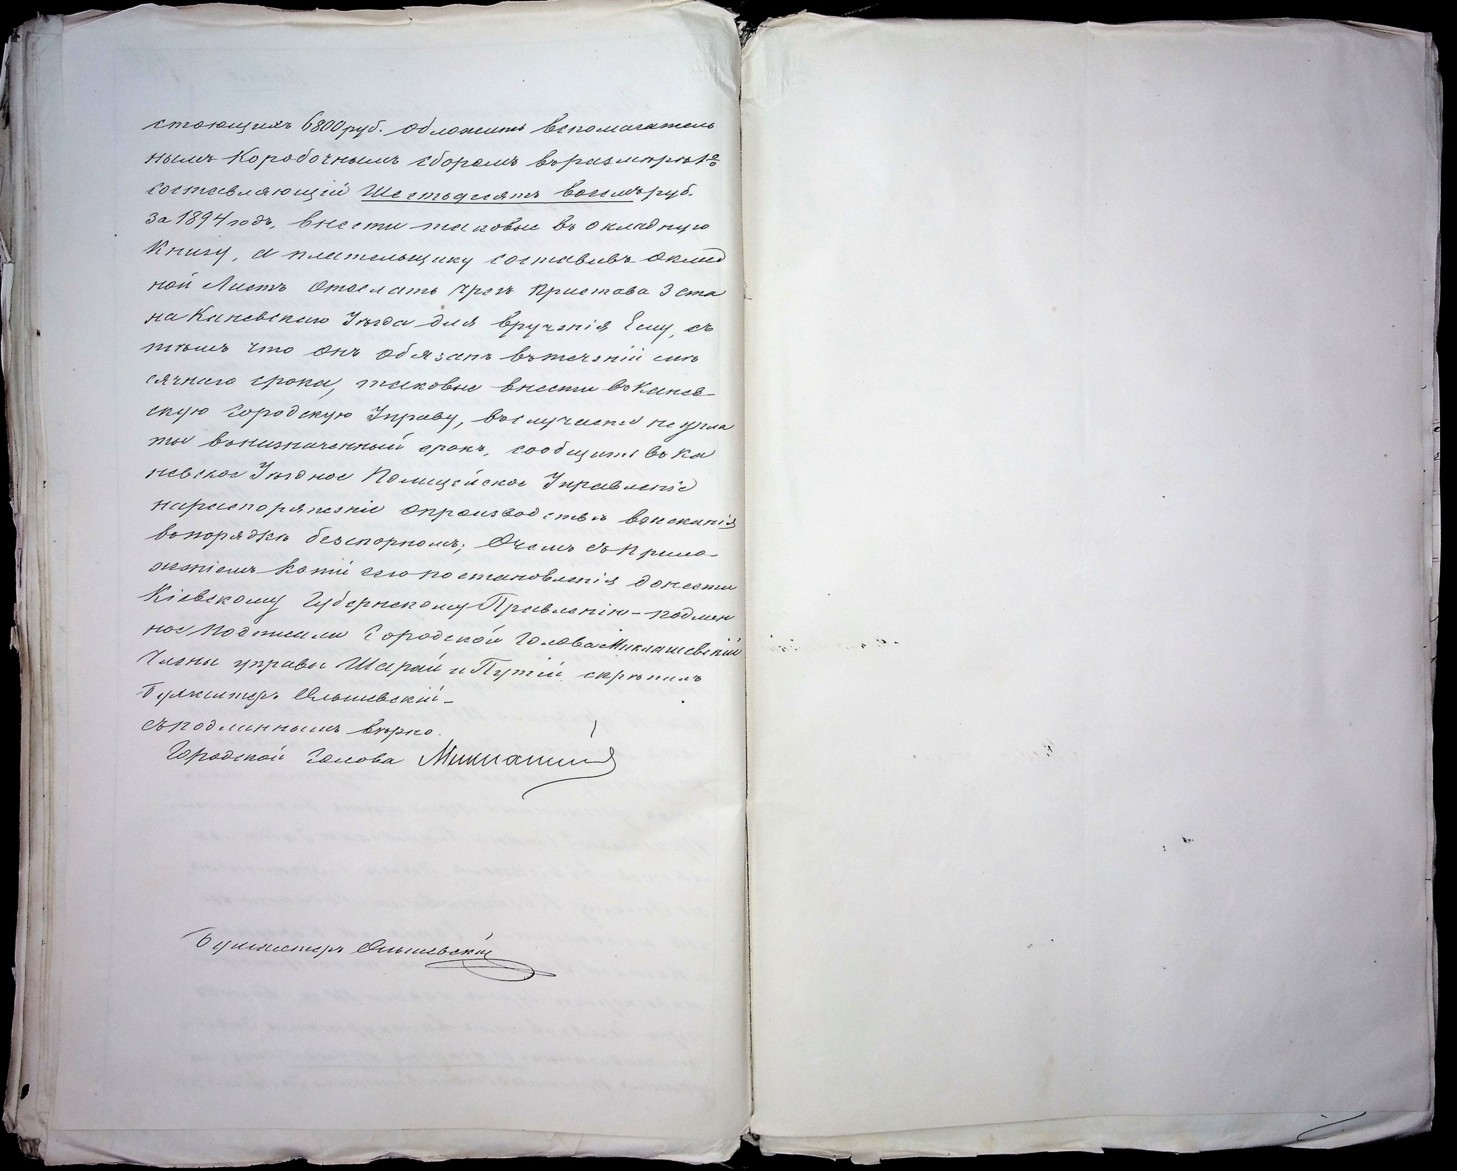 стоющихъ 6800 руб. обложить вспомагатель
нымъ Коробочнымъ сборомъ въ размѣрѣ 1%
составляющій Шестьдесятъ восемь руб.
за 1894 годъ, внести таковые въ окладную
Книгу, а плательщику составивъ оклад
ной Листъ отослать чрезъ Пристава 3 ста
на Каневскаго Уѣзда для врученія Ему, съ
тѣмъ что онъ обязанъ въ теченій мѣ
сячнаго срока, таковые внести въ Канев-
скую Городскую Управу, въ случаѣ неупла
ты въ назначенный срокъ, сообщить въ Ка
невское Уѣздное Полицейское Управленіе
на распоряженіе о производствѣ взысканія
въ порядкѣ безспорномъ; О чемъ съ прило-
женіемъ копіи сего постановленія донести
Кіевскому Губернскому Правленію - подлин
ное подписали Городской Голова Миклашевскій
Члены управы Шарай и Путій скрѣпилъ
Бухгалтеръ Ольшевскій -
съ подлиннымъ вѣрно.
Городской Голова
Бухгалтеръ Ольшевскій